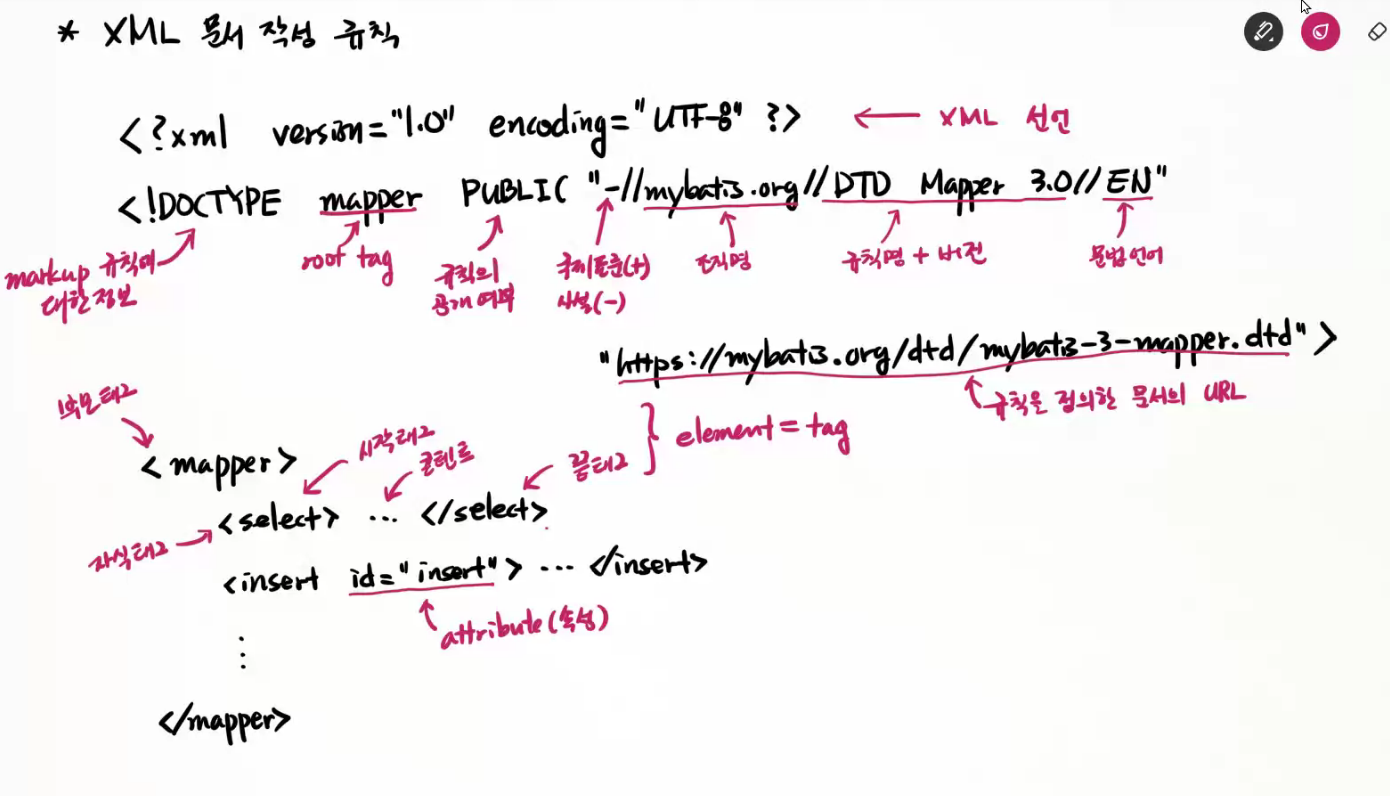 * XML 문서 작성 규칙
<?xml version="1.0" encoding="UTF-8" ?> ← XML 선언
<!DOCTYPE mapper PUBLIC "-//mybatis.org//DTD Mapper 3.0//EN"
markup 규칙에
대한 정보
root tag
규칙의
공개 여부
국제표준(+)
사설(-)
조직명
규칙명 + 버전
문법언어
"https://mybatis.org/dtd/mybatis-3-mapper.dtd">
규칙을 정의한 문서의 URL
부모태그
<mapper>
시작태그
콘텐트
끝태그
} element = tag
<select> ... </select>
자식태그
<insert id="insert"> ... </insert>
attribute(속성)
⋮
</mapper>